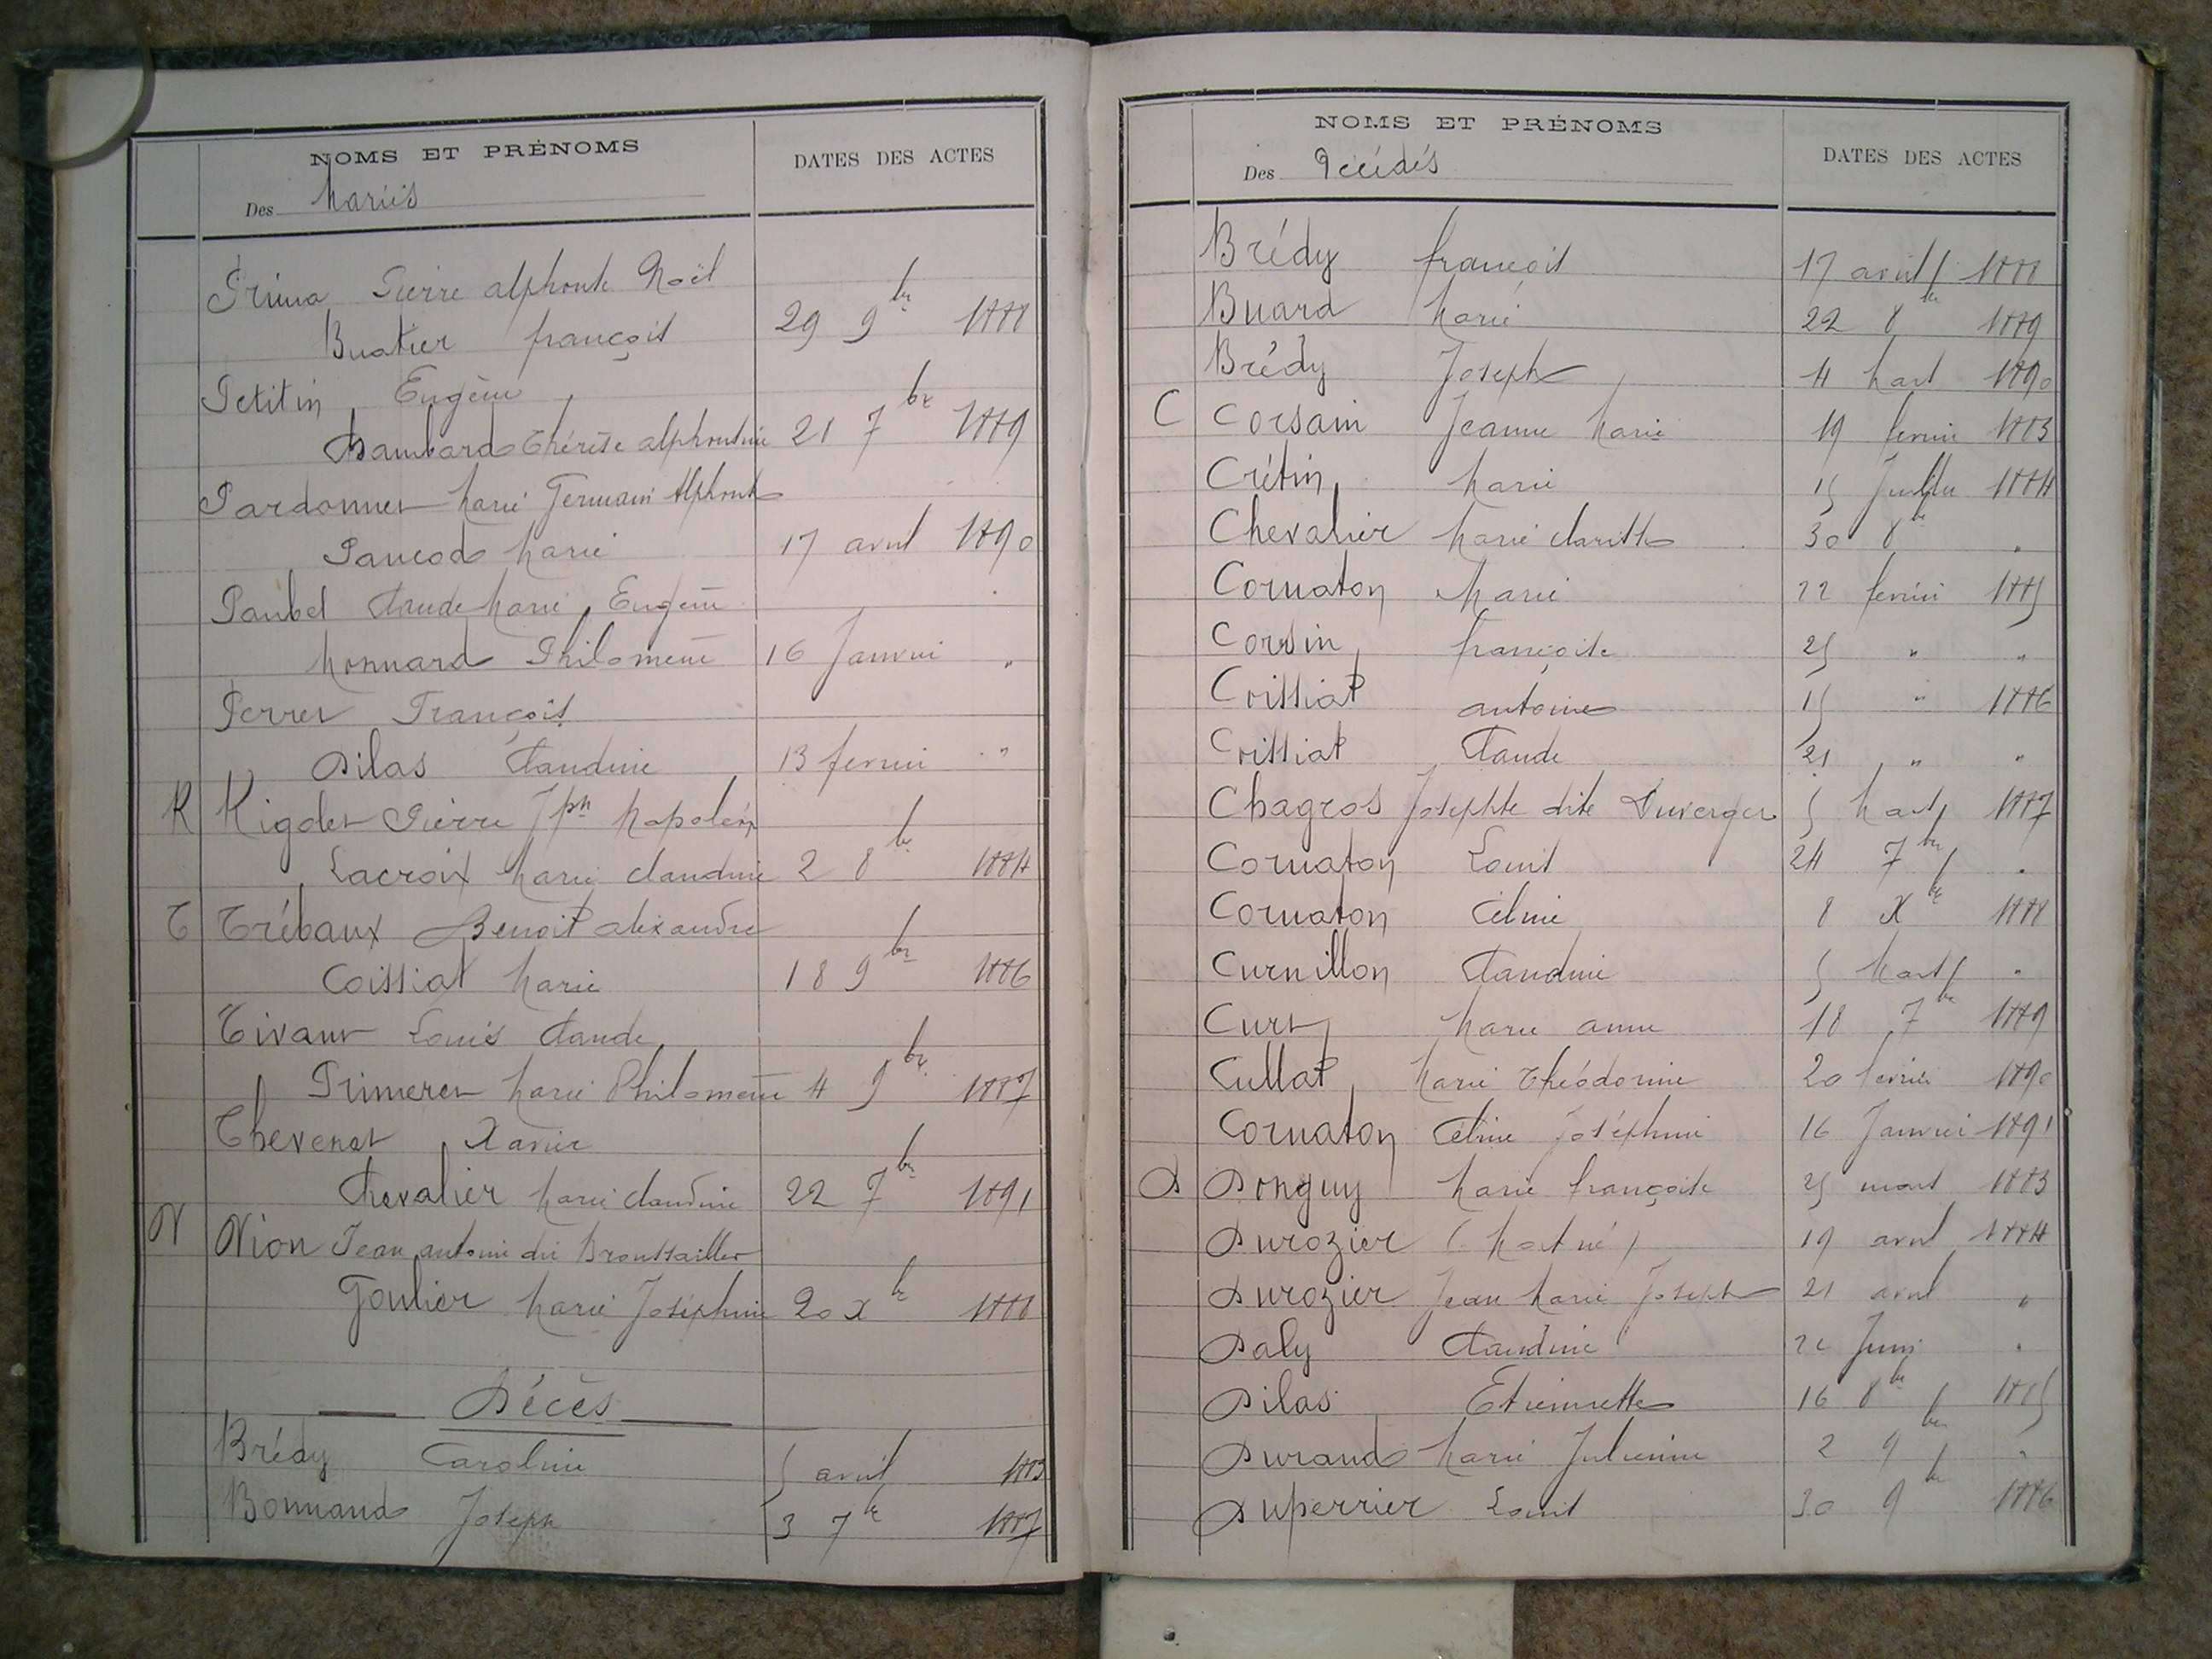 NOMS ET PRÉNOMS
Des Mariés
DATES DES ACTES
Prima Pierre alphonse Noël
Buatier françois 29 9bre 1888
Petitin Eugène
Chambard Thérèse alphonsine 21 7bre 1889
Pardonnet Marie Germain Alphonse
Pancod Marie 17 avril 1890
Paubel Claude Marie Eugène
Monnard Philomène 16 Janvier "
Perret François
Dilas Claudine 13 fevrier "
R Rigolet Pierre Jph Napoléon
Lacroix Marie Claudine 2 8bre 1884
T Trébaux Benoit alexandre
Coissiat Marie 18 9bre 1886
Tivant Louis Claude
Primeret Marie Philomène 4 9bre 1887
Thevenot Xavier
Chevalier Marie Claudine 22 7bre 1891
V Vion Jean antoine dit Broussailles
Goulier Marie Joséphine 20 Xbre 1888
Décès
Brédy Caroline 5 avril 1883
Bonnand Joseph 3 7bre 1887
NOMS ET PRÉNOMS
Des Décédés
DATES DES ACTES
Brédy françois 17 avril 1888
Buard Marie 22 8bre 1889
Brédy Joseph 4 Mars 1890
C Corsain Jeanne Marie 19 fevrier 1883
Crétin Marie 15 Juillet 1884
Chevalier Marie Clarisse 30 8bre "
Cornaton Marie 22 fevrier 1885
Corsin françoise 25 " "
Coissiat antoine 15 " 1886
Coissiat Claude 21 " "
Chagros Josephte dite Duverger 5 Mars 1887
Cornaton Louis 24 7bre "
Cornaton Céline 8 Xbre 1888
Curnillon Claudine 5 Mars "
Curt Marie anne 18 7bre 1889
Cullat Marie Théodorine 20 fevrier 1890
Cornaton Céline Joséphine 16 Janvier 1891
D Donguy Marie françoise 25 mars 1883
Durozier (Mort né) 19 avril 1884
Durozier Jean Marie Joseph 21 avril "
Daly Claudine Juin "
Dilas Etiennette 16 8bre 1885
Durand Marie Julienne 2 9bre "
Duperrier Louis 30 9bre 1886